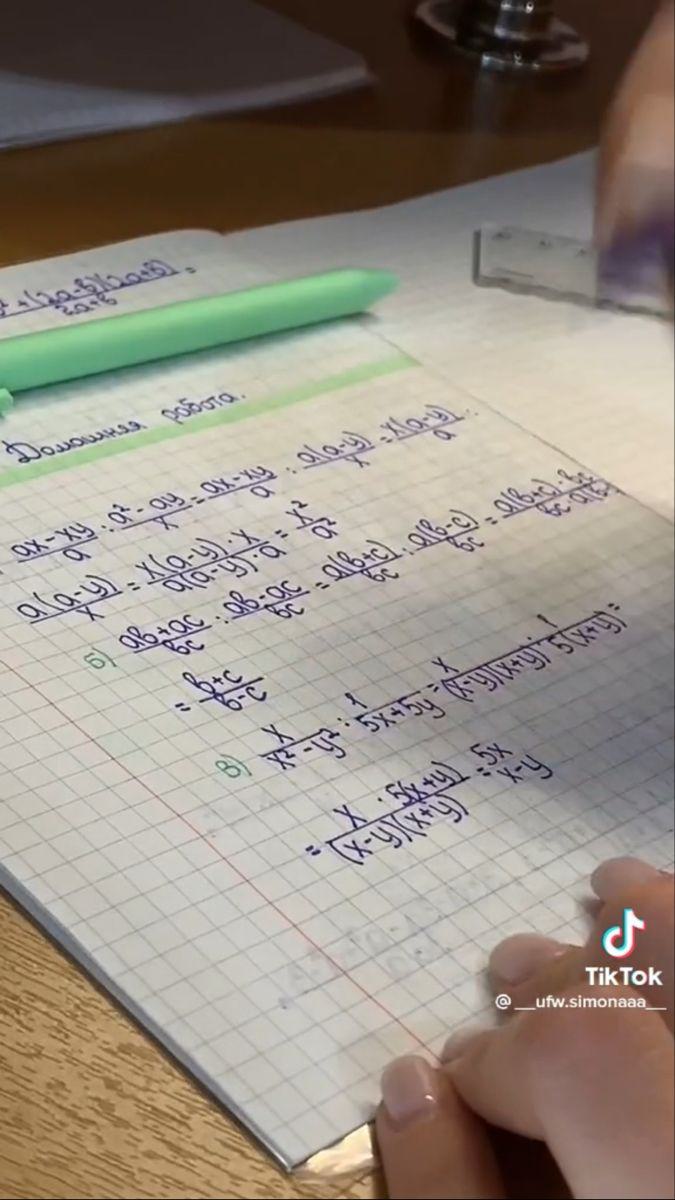 ² + (2a-b)(2a+b) / 2a+b =
Домашняя работа.
ax-xy / a : a²-ay / x = ax-xy / a : a(a-y) / x = x(a-y) / a :
a(a-y) / x = x(a-y)·x / a(a-y)·a = x² / a²
б) ab+ac / bc : ab-ac / bc = a(b+c) / bc : a(b-c) / bc = a(b+c)·bc / bc·a(b
= b+c / b-c
в) x / x²-y² : 1 / 5x+5y = x / (x-y)(x+y) : 1 / 5(x+y) =
= x·5(x+y) / (x-y)(x+y) = 5x / x-y
TikTok
@__ufw.simonaaa__